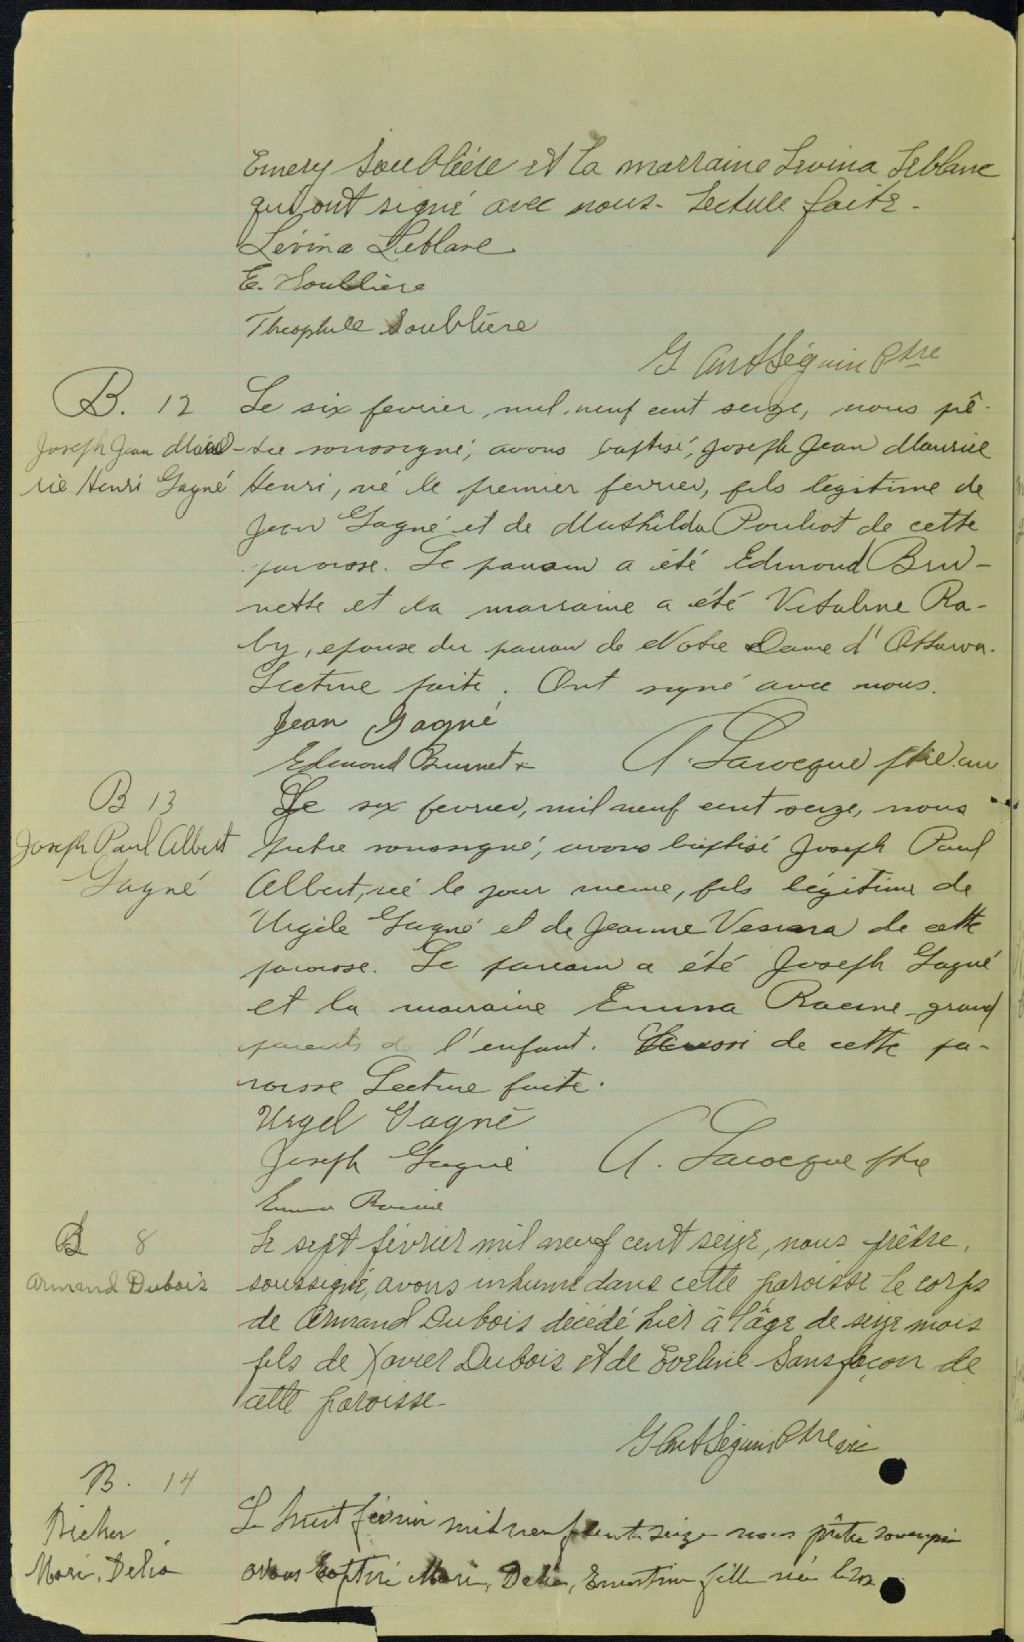 Emery Soublière et la marraine Levina Leblanc
qui ont signé avec nous. Lecture faite.
Lévina Leblanc
E. Soublière
Theophile Soublière
G Art Séguin Ptre
B. 12
Le six fevrier, mil neuf cent seize, nous prê-
Joseph Jean Mau-
tre soussigné, avons baptisé, Joseph Jean Maurice
rice Henri Gagné
Henri, né le premier fevrier, fils légitime de
Jean Gagné et de Mathilda Pouliot de cette
paroisse. Le parrain a été Edmond Bru-
nette et la marraine a été Vitaline Ra-
by, epouse du parrain de Notre Dame d'Ottawa.
Lecture faite. Ont signé avec nous.
Jean Gagné
Edmond Brunet
A. Larocque ptre
B 13
Le six fevrier, mil neuf cent seize, nous
Joseph Paul Albert
prêtre soussigné, avons baptisé Joseph Paul
Gagné
Albert, né le jour meme, fils légitime de
Urgèle Gagné et de Jeanne de cette
paroisse. Le parrain a été Joseph Gagné
et la marraine Emma Racine grand
parents de l'enfant. de cette pa-
roisse Lecture faite.
Urgel Gagné
Joseph Gagné
A. Larocque ptre
Emma Racine
8
Le sept février mil neuf cent seize, nous prêtre,
Armand Dubois
soussigné, avons inhumé dans cette paroisse le corps
de Armand Dubois décédé hier à l'âge de seize mois
fils de Xavier Dubois et de Eveline Sansfaçon de
cette paroisse.
G Art Séguin Ptre vic
B. 14
Le huit février mil neuf cent seize nous prêtre soussigné
Bicher
Marie, Delia
avons baptisé Marie, Delia, Ernestine fille née le